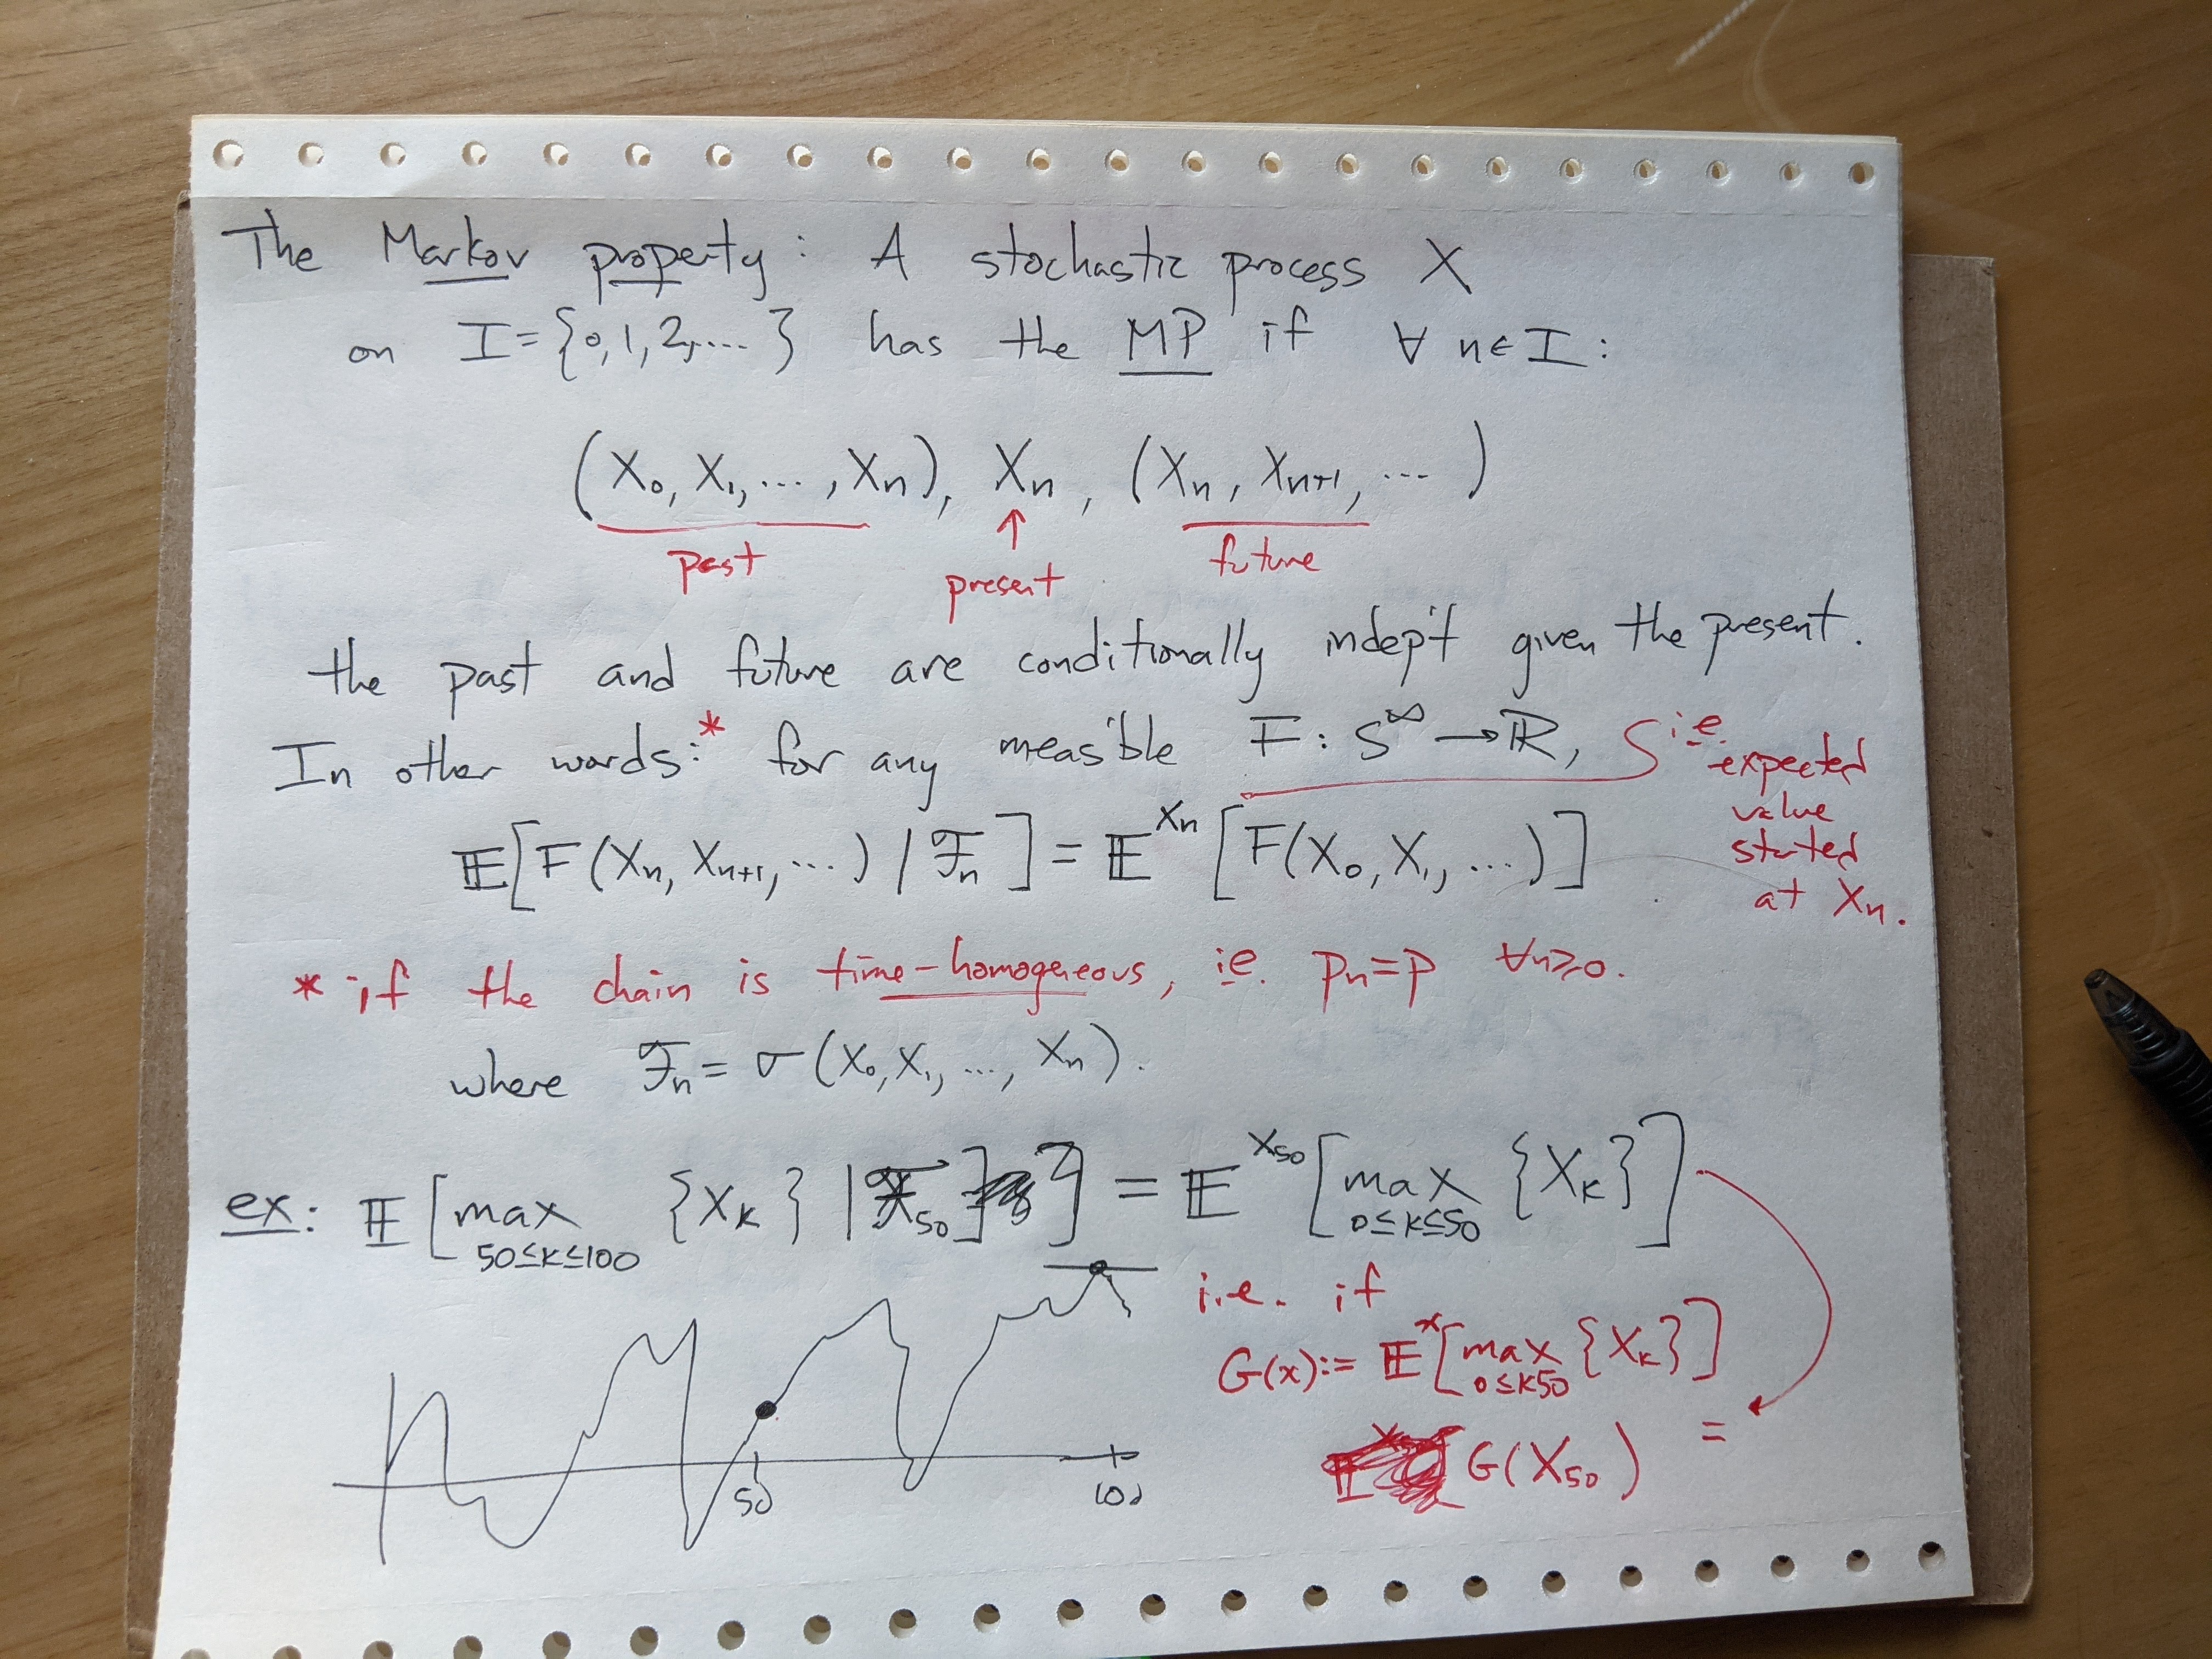 The Markov property: A stochastic process X
on I = {0, 1, 2, .... } has the MP if ∀ n ∈ I :
(X₀, X₁, ..., Xₙ), Xₙ, (Xₙ, Xₙ₊₁, ... )
past present future
the past and future are conditionally indep't given the present.
In other words:* for any meas'ble F : S^∞ → ℝ,
i.e. expected
value
started
at Xₙ.
𝔼[F(Xₙ, Xₙ₊₁, ...) | ℱₙ] = 𝔼^{Xₙ}[F(X₀, X₁, ...)]
* if the chain is time-homogeneous, ie. pₙ = p ∀n≥0.
where ℱₙ = σ(X₀, X₁, ..., Xₙ).
ex: 𝔼[max_{50≤k≤100} {X_k} | ℱ₅₀] = 𝔼^{X₅₀}[max_{0≤k≤50} {X_k}]
i.e. if
G(x) := 𝔼^x[max_{0≤k50} {X_k}]
G(X₅₀) =
50 100